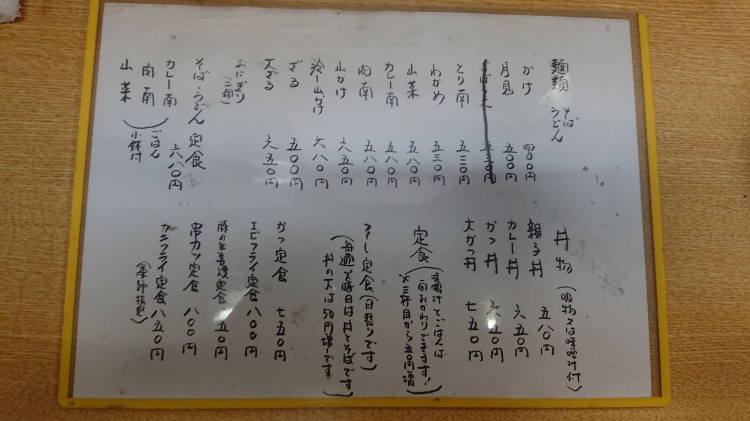 麺類 そば うどん
かけ 四〇〇円
月見 五〇〇円
五三〇円
とり南 五三〇円
わかめ 五三〇円
山菜 五八〇円
カレー南 五八〇円
肉南 五八〇円
山かけ 六五〇円
冷し山かけ 六八〇円
ざる 五〇〇円
大ざる 六五〇円
おにぎり
そば・うどん定食
カレー南 六八〇円
肉南 ごはん
山菜 小鉢付
丼物 (吸物又は味噌汁付)
親子丼 五八〇円
カレー丼 六五〇円
かつ丼 六五〇円
大かつ丼 七五〇円
定食 (味噌汁とごはんは
一回おかわりできます!
※三杯目から五〇円増)
(日替りです)
(毎週土曜日は丼とそばです
丼の大は50円増です)
かつ定食 七五〇円
エビフライ定食 八〇〇円
豚の生姜焼定食 七五〇円
串カツ定食 八〇〇円
カキフライ定食 八五〇円
(季節指定)